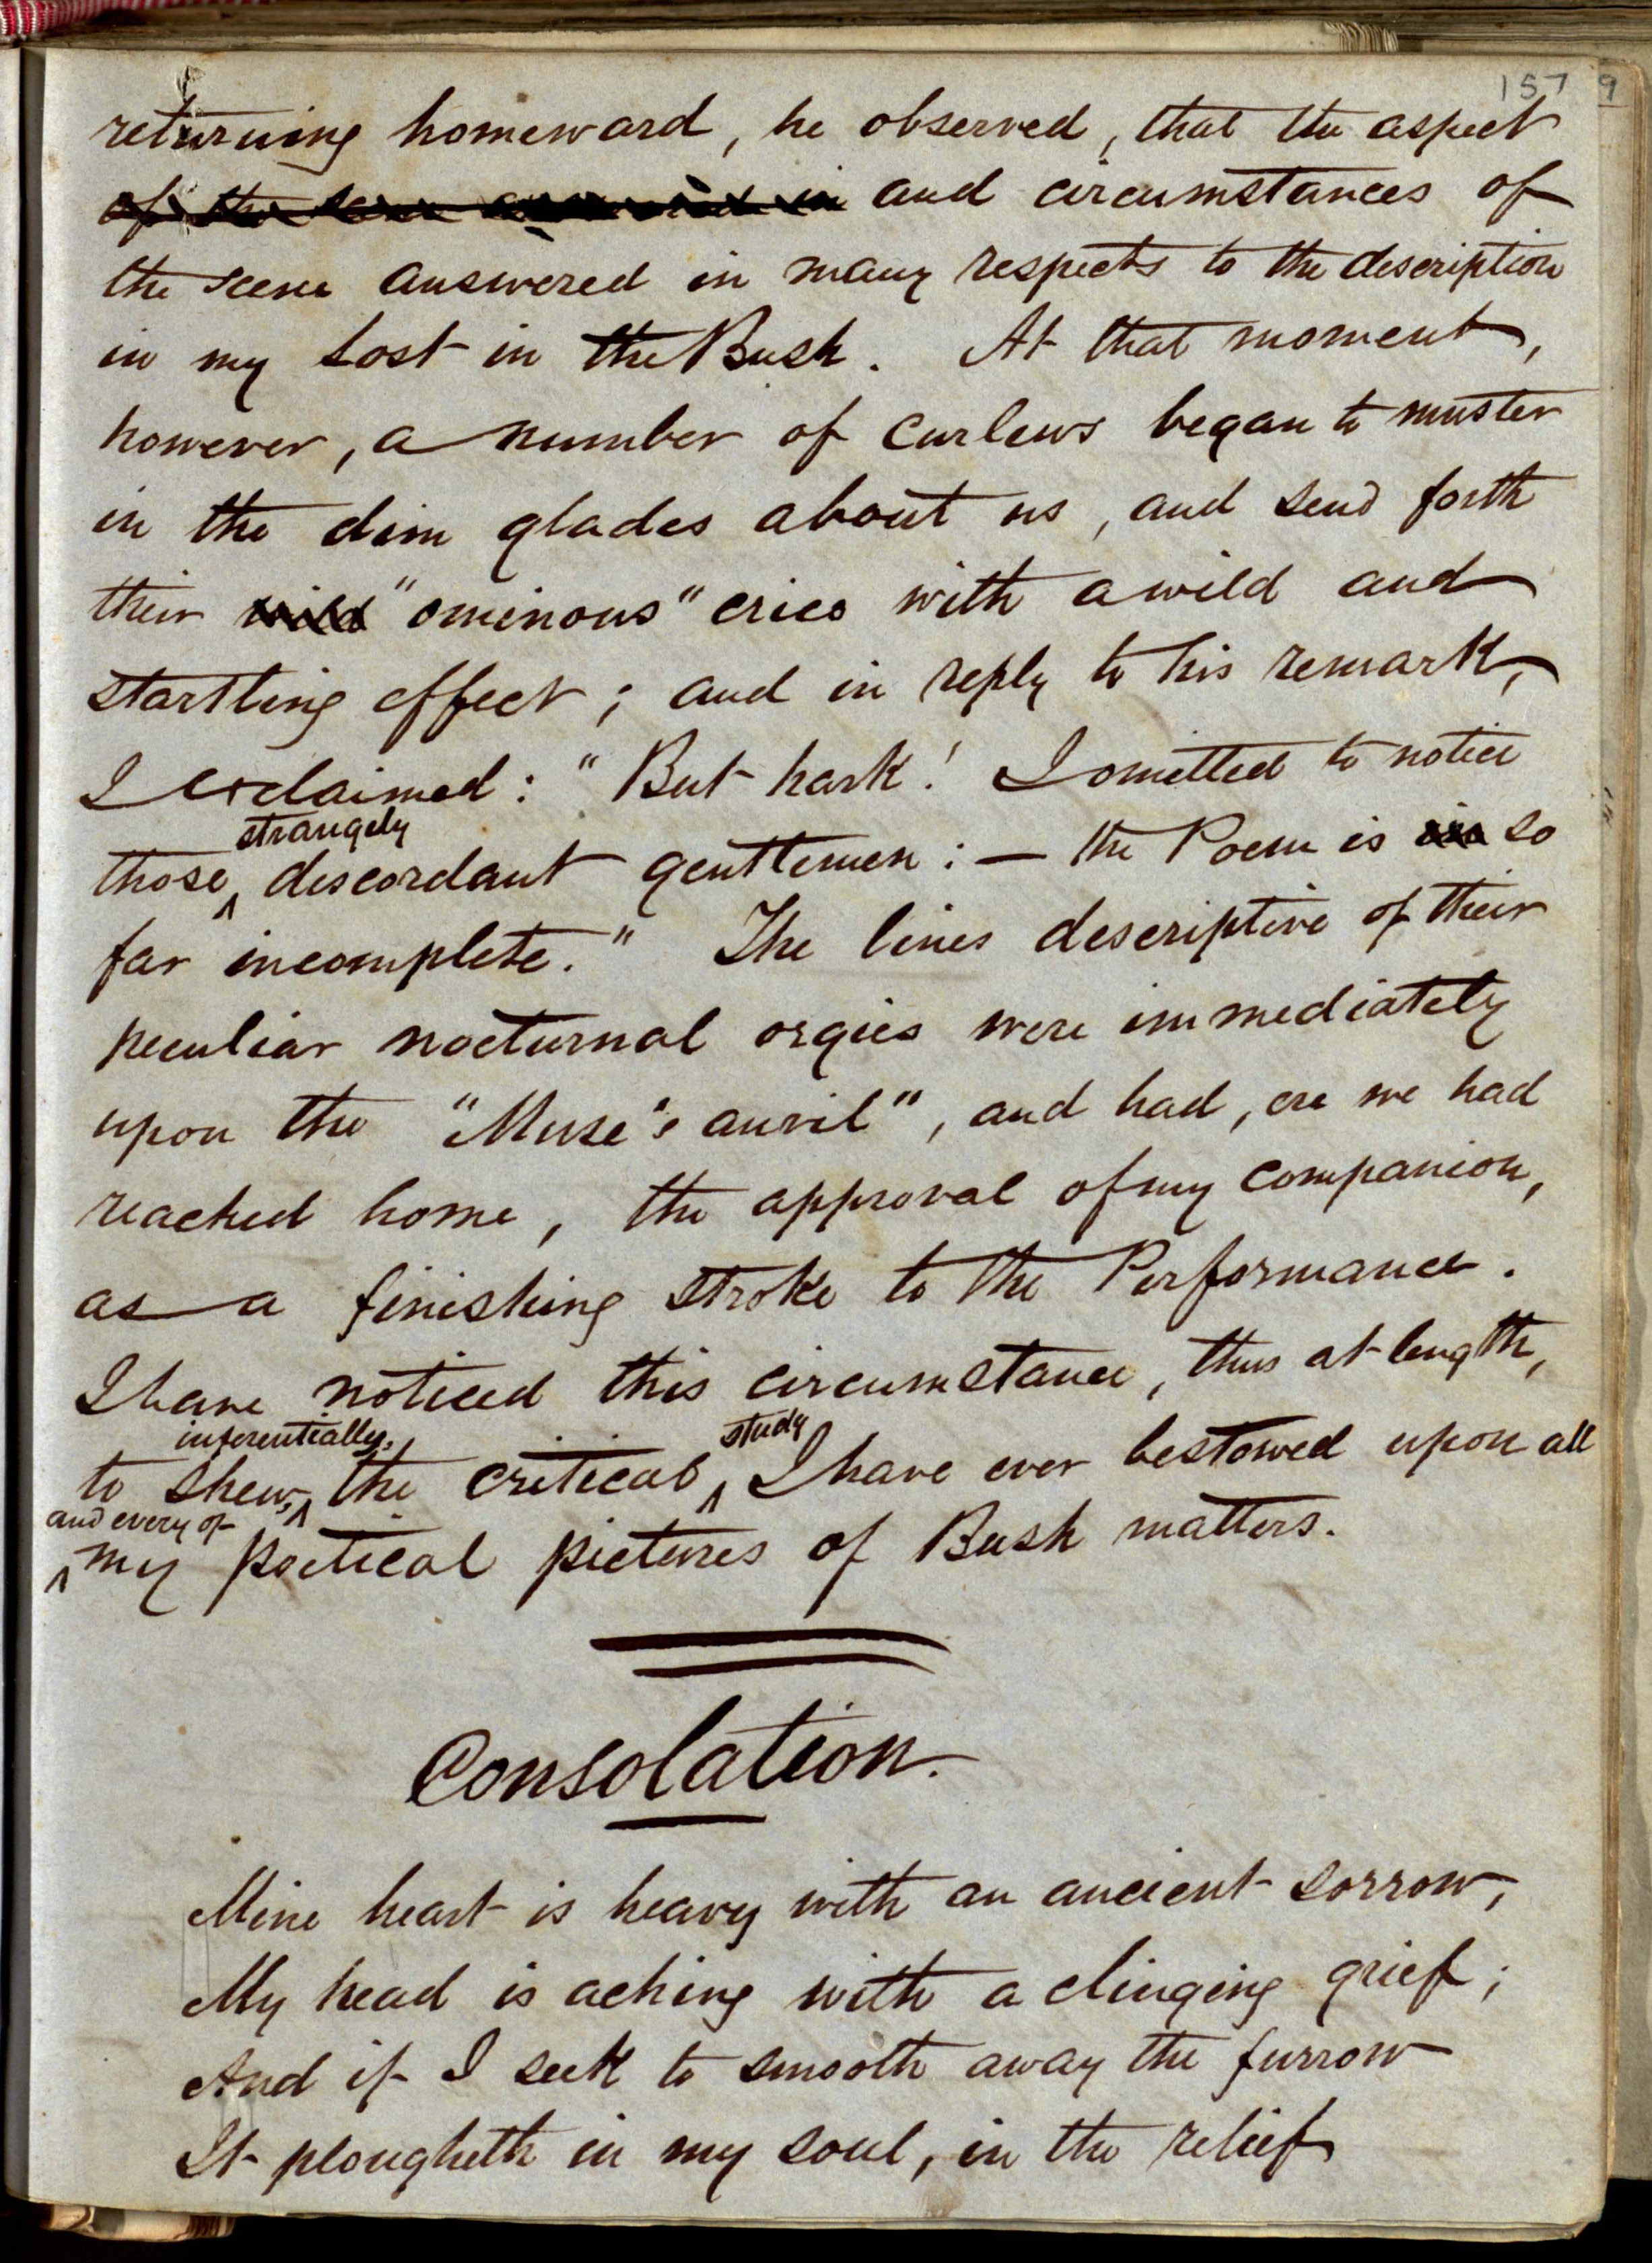 157 9
returning homeward, he observed, that the aspect
of the scene in and circumstances of
the scene answered in many respects to the description
in my Lost in the Bush. At that moment,
however, a number of curlews began to muster
in the dim glades about us, and send forth
their wild "ominous" cries with a wild and
startling effect; and in reply to his remark,
I exclaimed: "But hark! I omitted to notice
strangely
those discordant gentlemen:— the Poem is so
far incomplete." The lines descriptive of their
peculiar nocturnal orgies were immediately
upon the "Muse's anvil", and had, ere we had
reached home, the approval of my companion,
as a finishing stroke to the Performance.
I have noticed this circumstance, thus at length,
inferentially, study
to shew, the critical I have ever bestowed upon all
and every of
my poetical pictures of Bush matters.
Consolation.
Mine heart is heavy with an ancient sorrow,
My head is aching with a clinging grief;
And if I seek to smooth away the furrow
It plougheth in my soul, in the relief